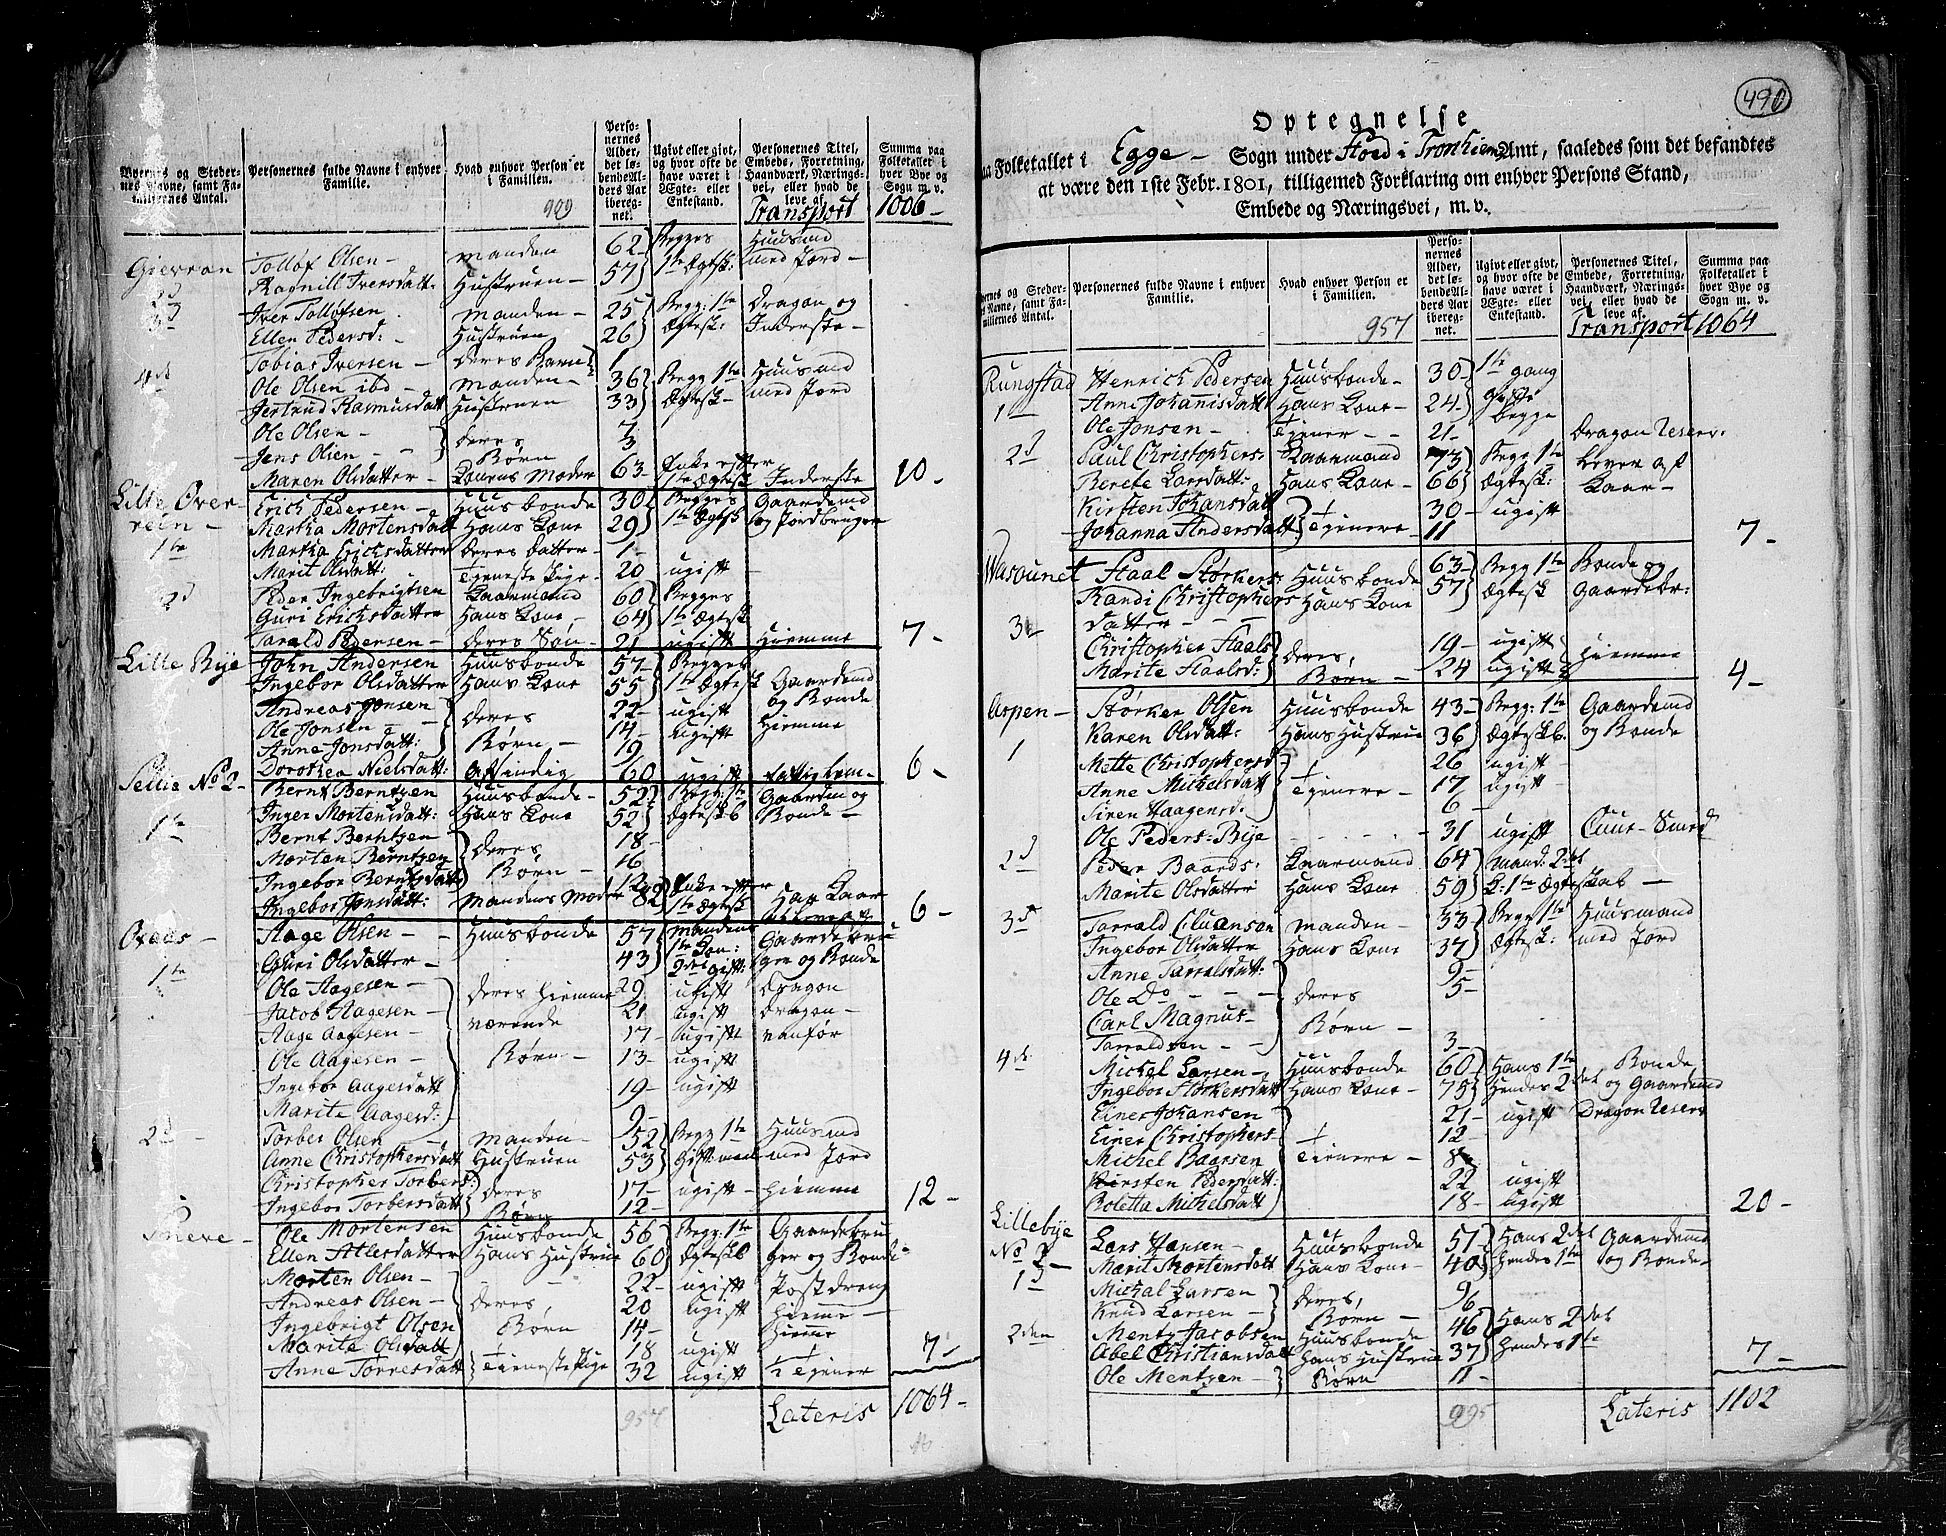 Byernes og Stedernes Navne, samt Familiernes Antal.
Personernes fulde Navne i enhver Familie.
Hvad enhver Person er i Familien.
Personernes Alder, det løbende Alders Aar iberegnet.
Ugivt eller givt, og hvor ofte de have været i Ægte- eller Enkestand.
Personernes Titel, Embede, Forretning, Haandværk, Næringsvei, eller hvad de leve af.
Summa paa Folketallet i hver Bye og Sogn m. v.
909 Transport 1006-
Gievran Tolløf Olsen - Manden 62 Begges Huusmd
Ragnill Iversdatt: Hustruen 57 1te Ægtesk: med Jord -
3d Iver Tolløfsen Manden - 25 Begg: 1te Dragon og
Ellen Pedersd: Hustruen 26 Ægtesk: Inderste -
Tobias Iversen - deres Barn 1
4de Ole Olsen ibd - Manden - 36 Begg 1te Huusmd
Jertrud Rasmusdatt Hustruen 33 Ægtesk - med Jord
Ole Olsen - deres 7
Jens Olsen - - Børn 3
Maren Olsdatter - Konens Moder 63 - Enke efter 1te Ægtesk Inderste 10 -
Lille Over-
rein - Erich Pedersen - Huusbonde 30 Begges Gaardemd
Martha Mortensdatt Hans Kone 29 1te Ægtesk og Jordbruger
1te Martha Erichsdatter deres datter - 1 -
Marit Olsdatt: Tieneste Pige - 20 ugift
2d Peder Ingebrigtsen Kaarmand 60 Begges
Guri Erichsdatter Hans Kone - 64 1te Ægtesk
Tarald Pedersen - deres Søn - 21 ugift Hiemme 7 -
Lille Bye John Andersen Huusbonde 57 - Begges
Ingebor Olsdatter Hans Kone 55 1te Ægtesk Gaardemd
Andreas Jonsen 22 - ugift og Bonde
Ole Jonsen - - deres 14 - ugift Hiemme
Anne Jonsdatt: Børn - 19
Dorothea Nielsdatt: Afsindig 60 ugift fattig Lem - 6 -
Sellie No 2 - Bernt Berntzen Huusbonde - 52 Begg: 1te Gaardm og
1te Inger Mortensdatt: Hans Kone 52 Ægtesk Bonde -
Bernt Berntzen 18 -
Morten Berntzen deres 16
Ingebor Berntsdatt Børn - 12
Ingebor Jonsdatt: Mandens Moder 82 Enke efter 1te Ægtesk Har Kaar 6 -
Oxaas - Aage Olsen - - Huusbonde 57 Mandens 1te Gaardebru
1te Guri Olsdatter - 43 Kon: 2den gift: ger og Bonde
Ole Aagesen - deres hiemme 29 ugift Dragon
Jacob Aagesen - værende 21 ugift Dragon -
Aage Aagesen - 17 - ugift vanfør
Ole Aagesen - Børn - 13 - ugift
Ingebor Aagesdatt 19 - ugift
Marite Aagesd: 9 -
2d - Torber Olsen - Manden - 52 Begg 1te Huusmd
Anne Christophersdatt Hustruen 53 Gift med Jord
Christopher Torbers: deres 17 - ugift - Hiemme
Ingebor Torbersdatt Børn 12 - 12 -
Ole Mortensen Huusbonde 56 Begg: 1te Gaardebru
Ellen Atlesdatter Hans Hustrue 60 Ægtesk ger og Bonde -
Morten Olsen - 22 - ugift Postdreng
Andreas Olsen - deres, 20 ugift Hiemme -
Ingebrigt Olsen Børn 14 - Hiemme
Marite Olsdatt 18 ugift
Anne Torresdatt Tieneste Pige 32 ugift Tiener 7 -
957 Lateris 1064 -

490
Optegnelse
paa Folketallet i Egge - Sogn under Stod i Tronhiems Amt, saaledes som det befandtes
at være den 1ste Febr. 1801, tilligemed Forklaring om enhver Persons Stand,
Embede og Næringsvei, m. v.
Personernes fulde Navne i enhver Familie.
Hvad enhver Person er i Familien.
Personernes Alder, det løbende Alders Aar iberegnet.
Ugivt eller givt, og hvor ofte de have været i Ægte- eller Enkestand.
Personernes Titel, Embede, Forretning, Haandværk, Næringsvei, eller hvad de leve af.
Summa paa Folketallet i hver Bye og Sogn m. v.
957 Transport 1064
Rungstad Henrich Pedersen Huusbonde - 30 - 1te gang
1 - Anne Johannisdatt Hans Kone - 24 - gifte begge
Ole Jonsen - Tiener - - 21 - Dragon Reserv:
2d Paul Christophers: Kaarmand 73 Begg 1te Lever af
Berete Larsdatt: Hans Kone - 66 Ægtesk: Kaar -
Kirsten Johansdatt 30 - ugift
Johanna Andersdatt Tienere - 11 7 -
Wasounet Staal Størkers: Huusbonde 63 - Begg 1te Bonde og
Randi Christophers Hans Kone 57 Ægtesk Gaardebr:
datter - - -
Christopher Staals deres, 19 - ugift Hiemme
Marite Staalsd: Børn - 24 ugift 4 -
Aspen - Størker Olsen Huusbonde 43 - Begg: 1te Gaardemd
1 Karen Olsdatt: Hans Hustrue 36 Ægtesk. og Bonde
Mette Christophersd 26 ugift
Anne Michelsdatt Tienere - 17 ugift
Siren Haagensd. 6 -
Ole Peders: Bye 31 ugift Cuur-Smed
2d Peder Baards: Kaarmand 64 mand: 2det
Marite Olsdatter Hans Kone 59 K: 1te Ægteskab -
3d Tarrald Eluenson Manden - 33 Begg 1te Huusmand
Ingebor Olsdatter Hans Kone 37 Ægtesk: med Jord
Anne Tarralsdatt: 9 -
Ole Do - - - deres 5 -
Carl Magnus - Børn -
Tarraldsen - - 3 -
4de Michel Larsen - Huusbonde 60 - Hans 1te Bonde
Ingebor Størkersdatt Hans Kone - 75 Hendes 2det og Gaardemd
Einer Johansen 21 - ugift Dragon Reserv
Einer Christophers - 12 -
Michel Baarsen Tienere - 8
Kirsten Pedersdatt: 22 ugift
Boletta Michelsdatt 18 - ugift 20 -
Lillebye
No 2 - Lars Hansen - Huusbonde 51 - Hans 2det Gaardemd
1d Marit Mortensdatt Hans Kone - 40 Hendes 1te og Bonde -
Michal Larsen deres, 9
Knud Larsen - Børn - 6
2den Mentz Jacobsen Huusbonde 46 Hans 2det
Abel Christiansdatt Hans Hustrue 37 Hendes 1te
Ole Mentzen - Børn 11 - 7 -
995 Lateris 1102